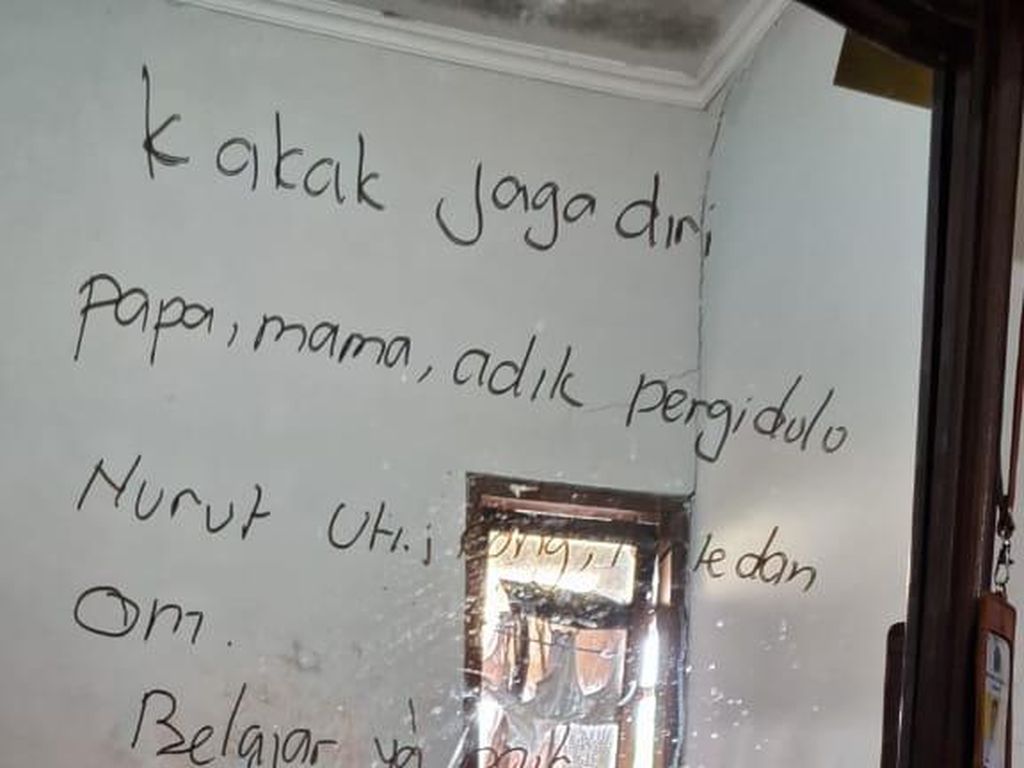 Kakak jaga diri
Papa, mama, adik pergi dulo
Nurut Uti, kung, dan
Om.
Belajar yg